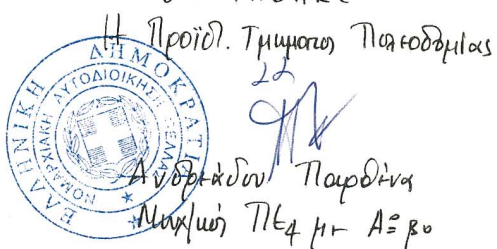 Η Προϊστ. Τμήματος Πολεοδομίας
ΕΛΛΗΝΙΚΗ ΔΗΜΟΚΡΑΤΙΑ
ΝΟΜΑΡΧΙΑΚΗ ΑΥΤΟΔΙΟΙΚΗΣΗ
Ανδρεάδου Παρθένα
Μηχ/κός ΠΕ4 με Αξ βο